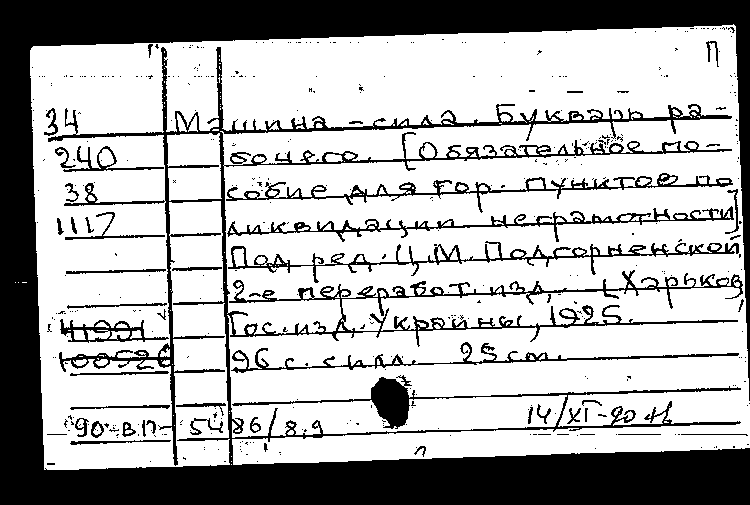 П
34 Машина - сила. Букварь ра-
240 бочего. [Обязательное по-
38 собие для гор. пунктов по
1117 ликвидации неграмотности]
Под ред. Ц.М. Подгорненской
2-е переработ. изд. [Харьков]
41991 Гос. изд. Украины, 1925.
100526 96 с. с илл. 25 см.
90-вп-5486/8,9 14/XI-90
п